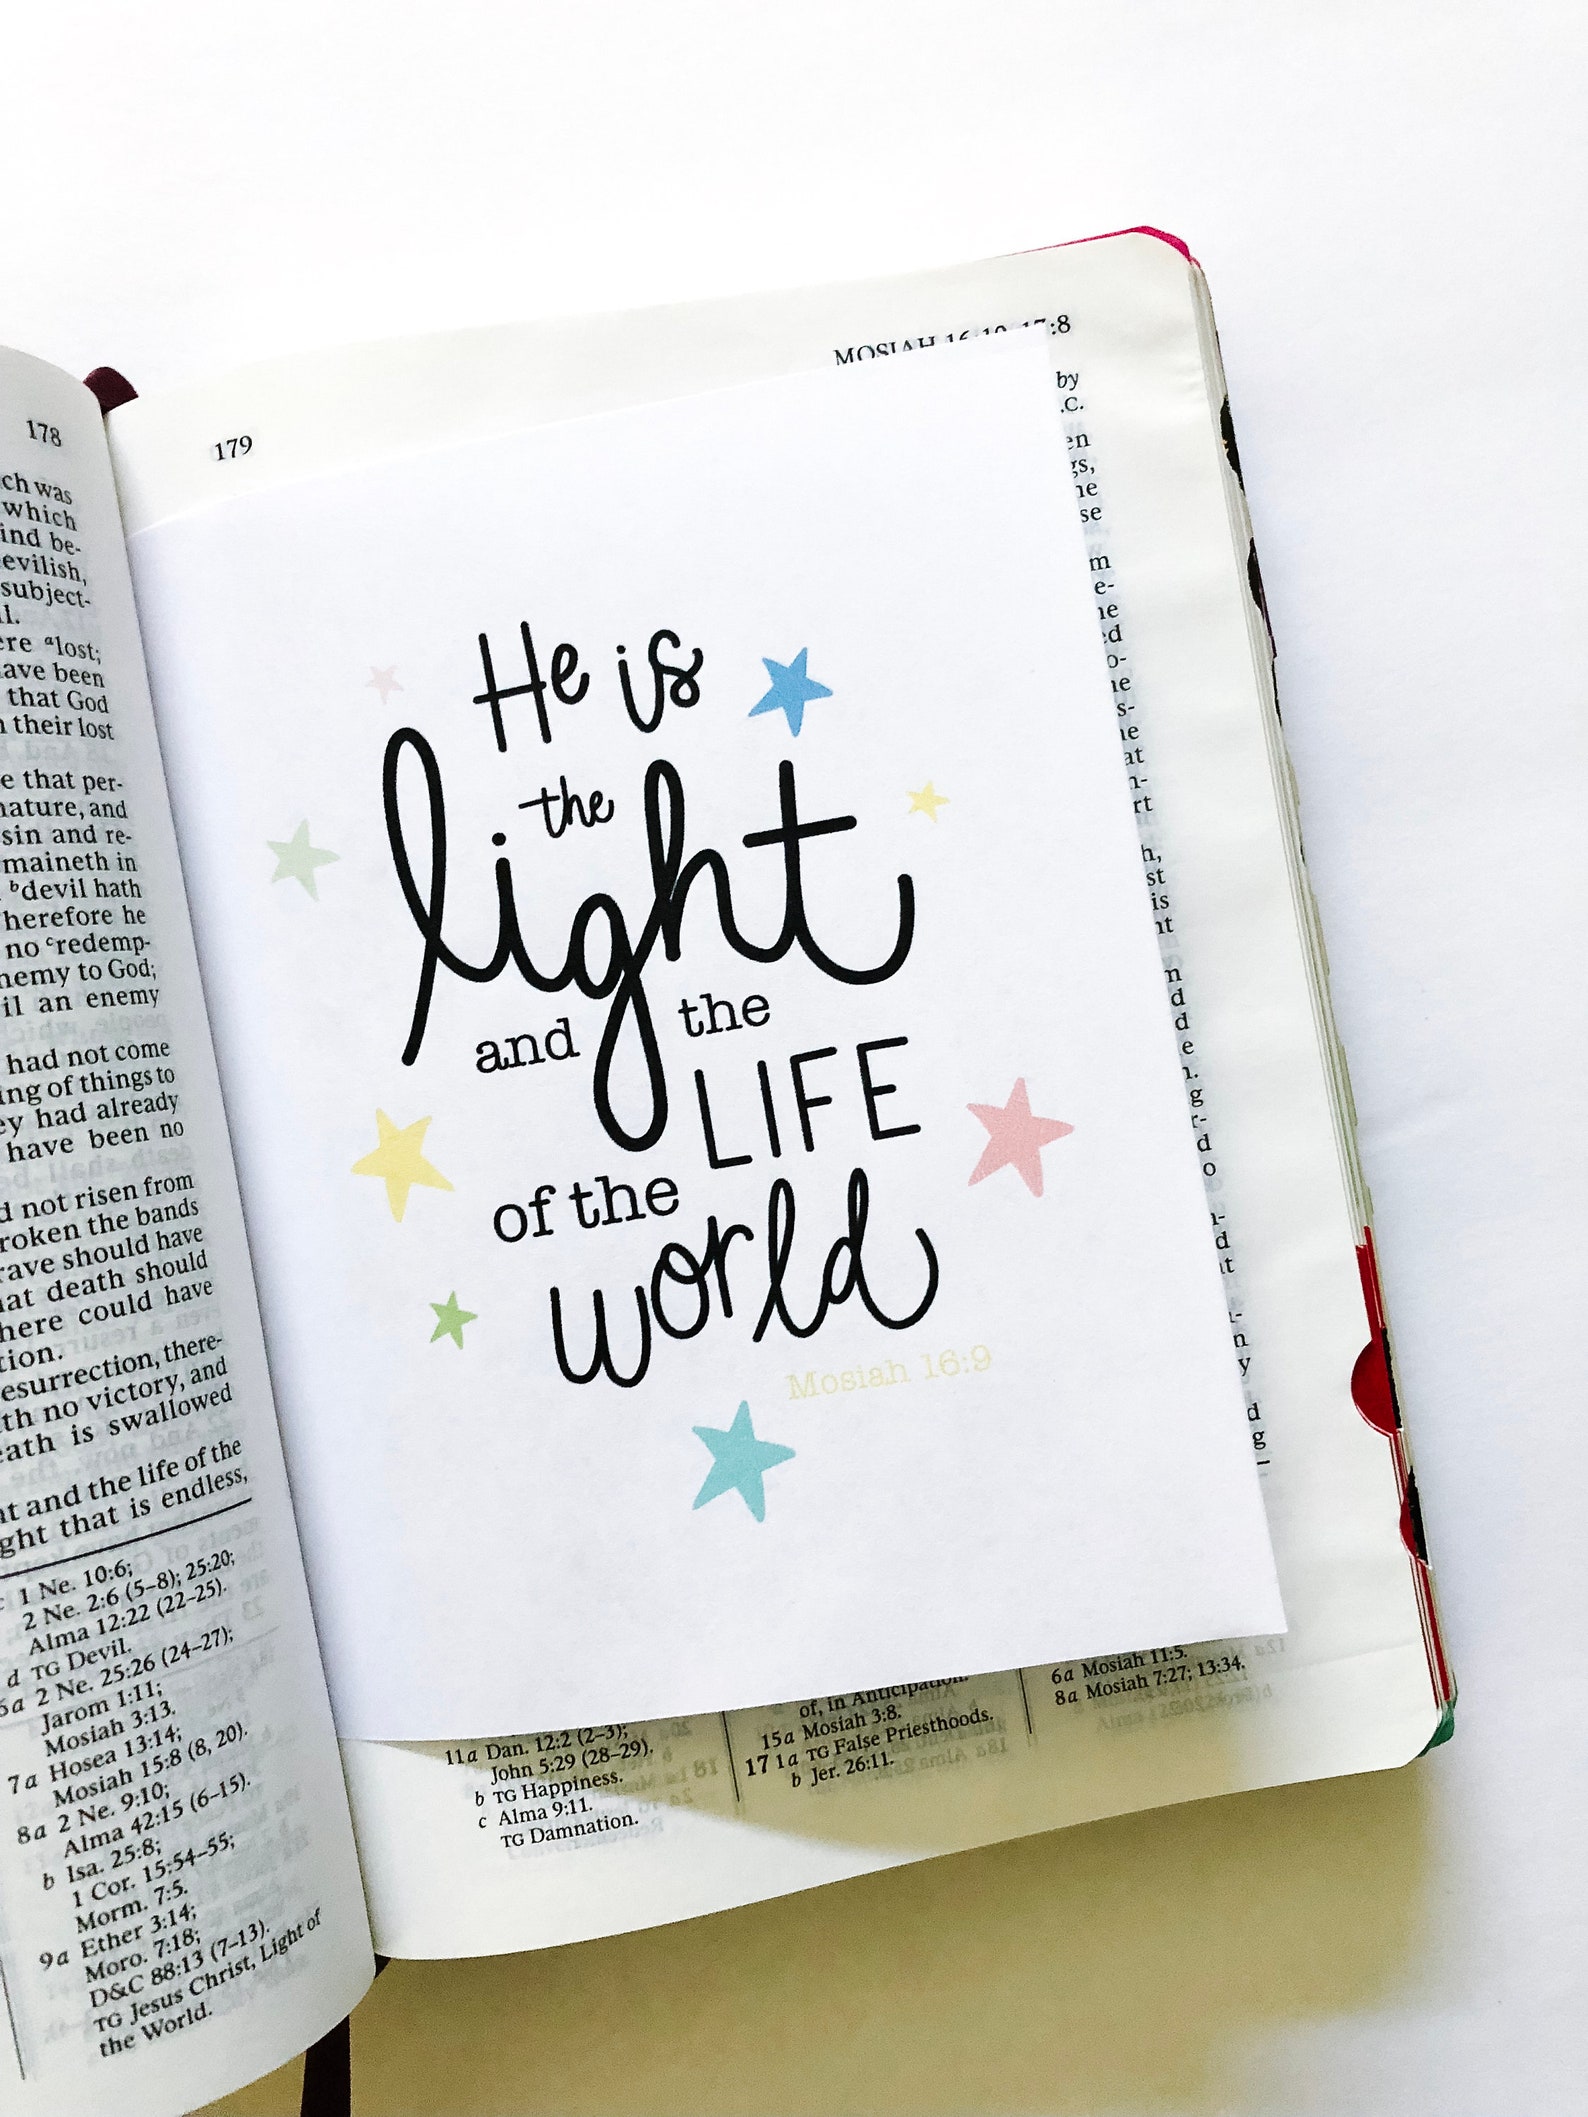 178
ch was
which
ind be-
evilish,
subject-
ere ᵃlost;
ave been
that God
their lost
e that per-
nature, and
sin and re-
maineth in
ᵇdevil hath
herefore he
no ᶜredemp-
nemy to God;
il an enemy
had not come
ing of things to
ey had already
have been no
not risen from
roken the bands
rave should have
hat death should
here could have
tion.
esurrection, there-
th no victory, and
eath is swallowed
and the life of the
ght that is endless,
1 Ne. 10:6;
2 Ne. 2:6 (5–8); 25:20;
Alma 12:22 (22–25).
d TG Devil.
2 Ne. 25:26 (24–27);
Jarom 1:11;
Mosiah 3:13.
7a Hosea 13:14;
Mosiah 15:8 (8, 20).
8a 2 Ne. 9:10;
Alma 42:15 (6–15).
b Isa. 25:8;
1 Cor. 15:54–55;
Morm. 7:5.
9a Ether 3:14;
Moro. 7:18;
D&C 88:13 (7–13).
TG Jesus Christ, Light of
the World.
179
MOSIAH 16:10–17:8
by
.C.
He is
the
light
and the
LIFE
of the
world
Mosiah 16:9
11a Dan. 12:2 (2–3);
John 5:29 (28–29).
b TG Happiness.
c Alma 9:11.
TG Damnation.
of, in Anticipation.
15a Mosiah 3:8.
17 1a TG False Priesthoods.
b Jer. 26:11.
6a Mosiah 11:5.
8a Mosiah 7:27; 13:34.